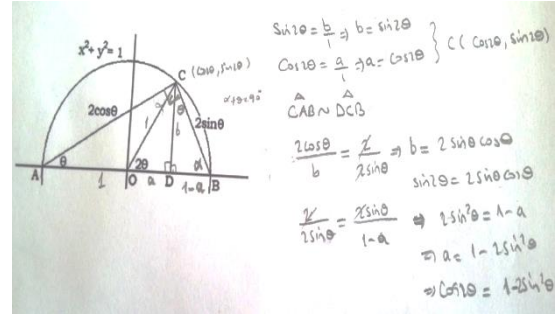 x²+y²=1
C (cos2θ, sin2θ)
α+θ=90°
2cosθ
1
α
θ
b
2sinθ
A
θ
2θ
α
1
O
a
D
1-a
B
Sin2θ = b/1 ⇒ b = sin2θ
Cos2θ = a/1 ⇒ a = cos2θ } C( Cos2θ, sin2θ)
CAB ~ DCB
2cosθ/b = 2/2sinθ ⇒ b = 2 sinθ cosθ
sin2θ = 2sinθ cosθ
2/2sinθ = 2sinθ/1-a ⇒ 2sin²θ = 1-a
⇒ a = 1-2sin²θ
⇒ Cos2θ = 1-2sin²θ